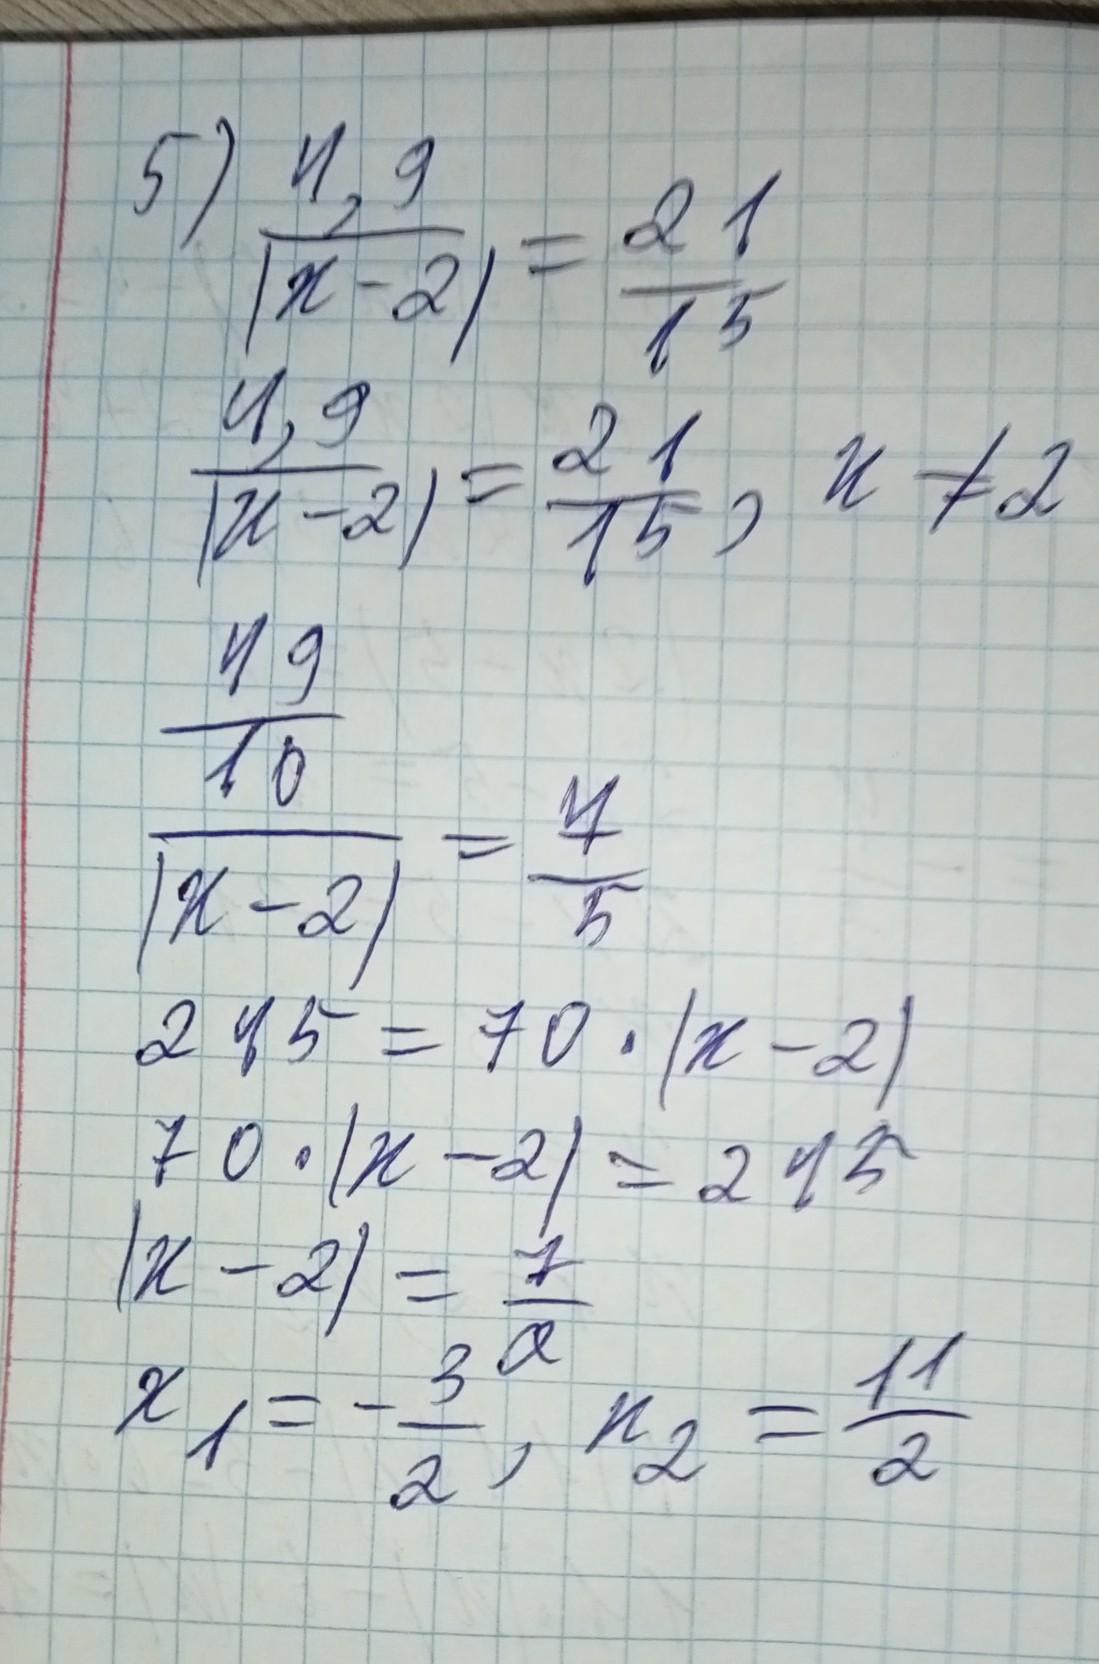 5) 4,9/|x-2| = 21/15
4,9/|x-2| = 21/15, x ≠ 2
49/10/|x-2| = 7/5
245 = 70·|x-2|
70·|x-2| = 245
|x-2| = 7/2
x₁ = -3/2, x₂ = 11/2